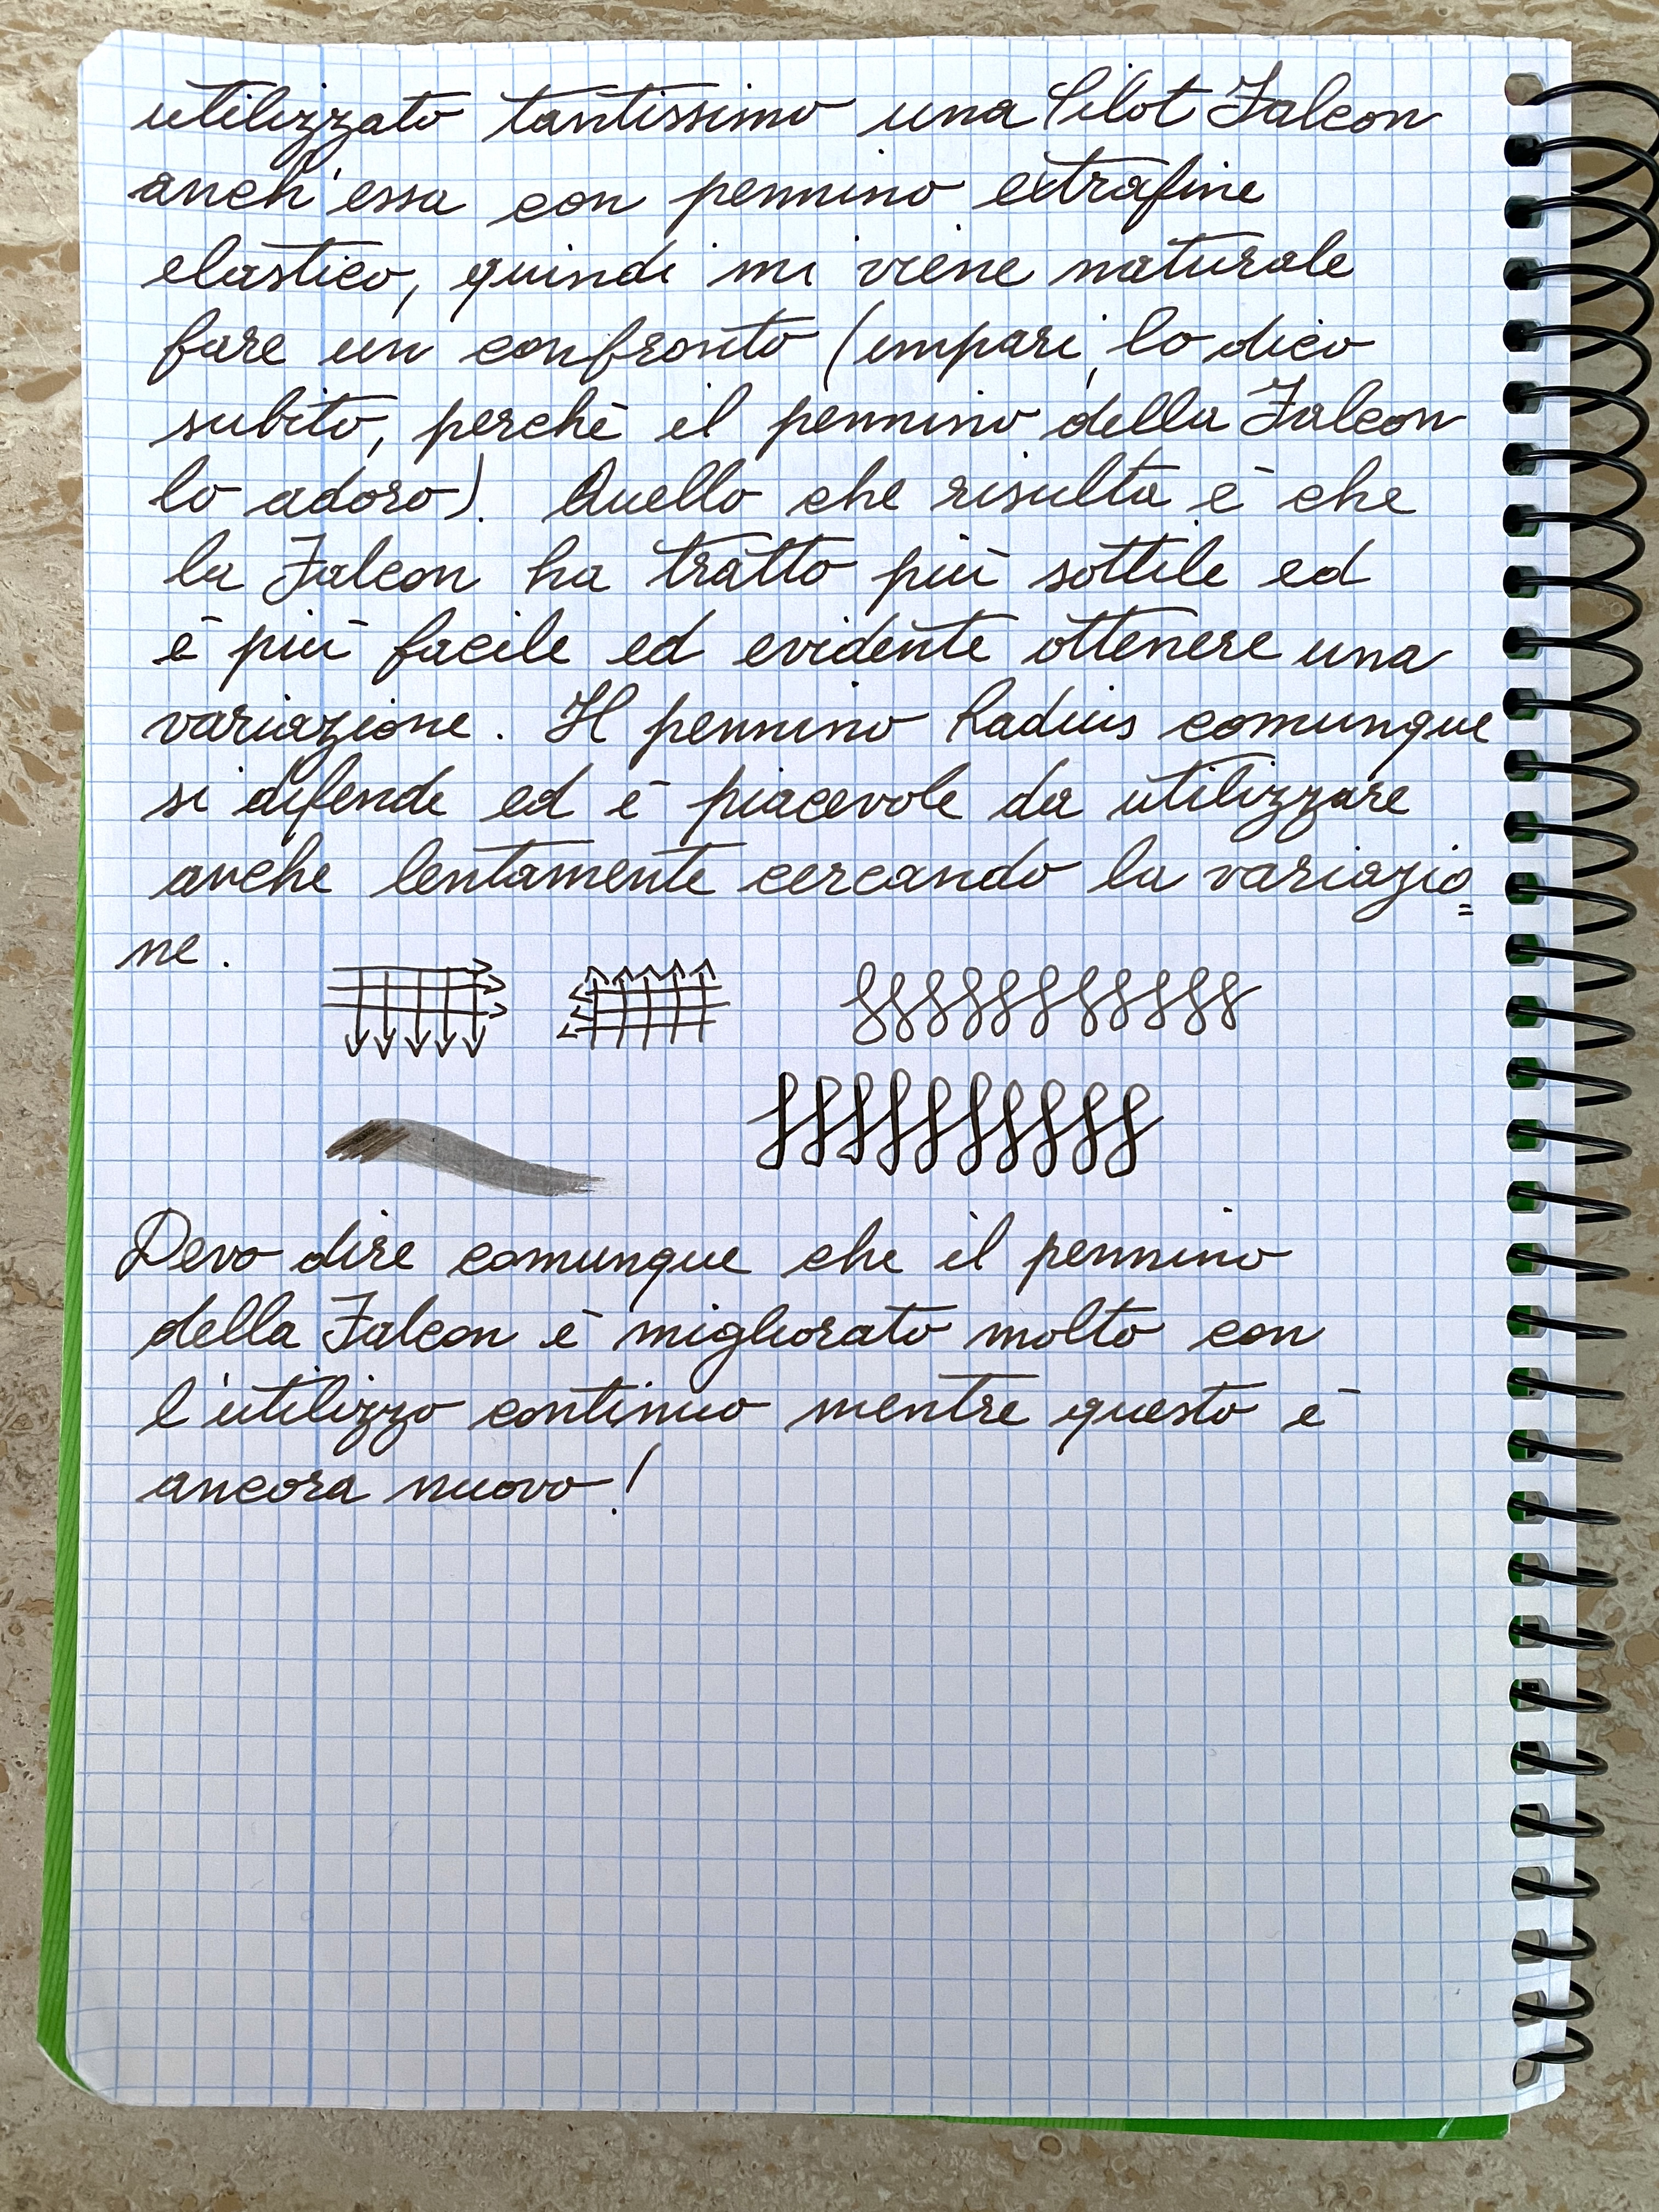 utilizzato tantissimo una Pilot Falcon
anch'essa con pennino extrafine
elastico, quindi mi viene naturale
fare un confronto (impari, lo dico
subito, perchè il pennino della Falcon
lo adoro). Quello che risulta è che
la Falcon ha tratto più sottile ed
è più facile ed evidente ottenere una
variazione. Il pennino Radius comunque
si difende ed è piacevole da utilizzare
anche lentamente cercando la variazio=
ne.
Devo dire comunque che il pennino
della Falcon è migliorato molto con
l'utilizzo continuo mentre questo è
ancora nuovo!